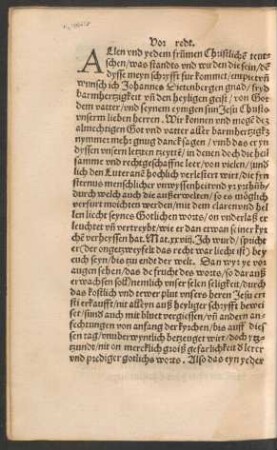 Vor redt.
ALlen vnd yedem frümen Christlichē teut
schen / was standts vnd wurden die sein / dē
dysse meyn schryfft fur kommet / empiet vñ
wünsch ich Johannes Dietenbergen gnad / fryd
barmhertzigkeit vñ den heyligen geist / von Got
dem vatter / vnd seynem eynigen sun Jesu Christo
vnserm lieben herren. Wir konnen vnd mogē dez
almechtigen Got vnd vatter aller barmhertzigkz
nymmet mehr gnug danck sagen / vnnd das er yn
dyssen vnsern letzten zeytē / in denen doch die heil
samme vnd rechtgeschaffne leer / von vielen / sund
lich den Luteranē hochlich verlestert wirt / die fyn
sternus menschlicher vnwyssenheit vnd yrthūb /
durch welch auch die außerwelten / so es möglich
verfurt mochten werden / mit dem claren vnd hel
len liecht seynes Gotlichen worts / on vnderlaß er
leuchtet vñ vertreybt / wie er dan etwan seiner kyr
chē verheyssen hat. Mat. xxviij. Ich wurd / spricht
er (der ongetzweyfelt das recht war liecht ist) bey
euch seyn / bis zu end der welt. Dan wyr ye vor
augen sehen / das de frucht des worts / so daraus
er wachsen soll / nemlich vnser selen seligkeit / durch
das kostlich vnd tewer plut vnsers heren Jesu ern
sti erkaufft / nit alleyn auß heyliger schryfft bewei
set / sund auch mit bluet vergiessen / vñ andern an-
fechtungen von anfang der kyrchen / bis auff dies
sen tag / vnuberwyntlich betzeuget wirt / doch ytz-
tzundt / nit on mercklich groiß gefarlichkeit d lerer
vnd prediger gotlichs worts. Also das eyn yeder